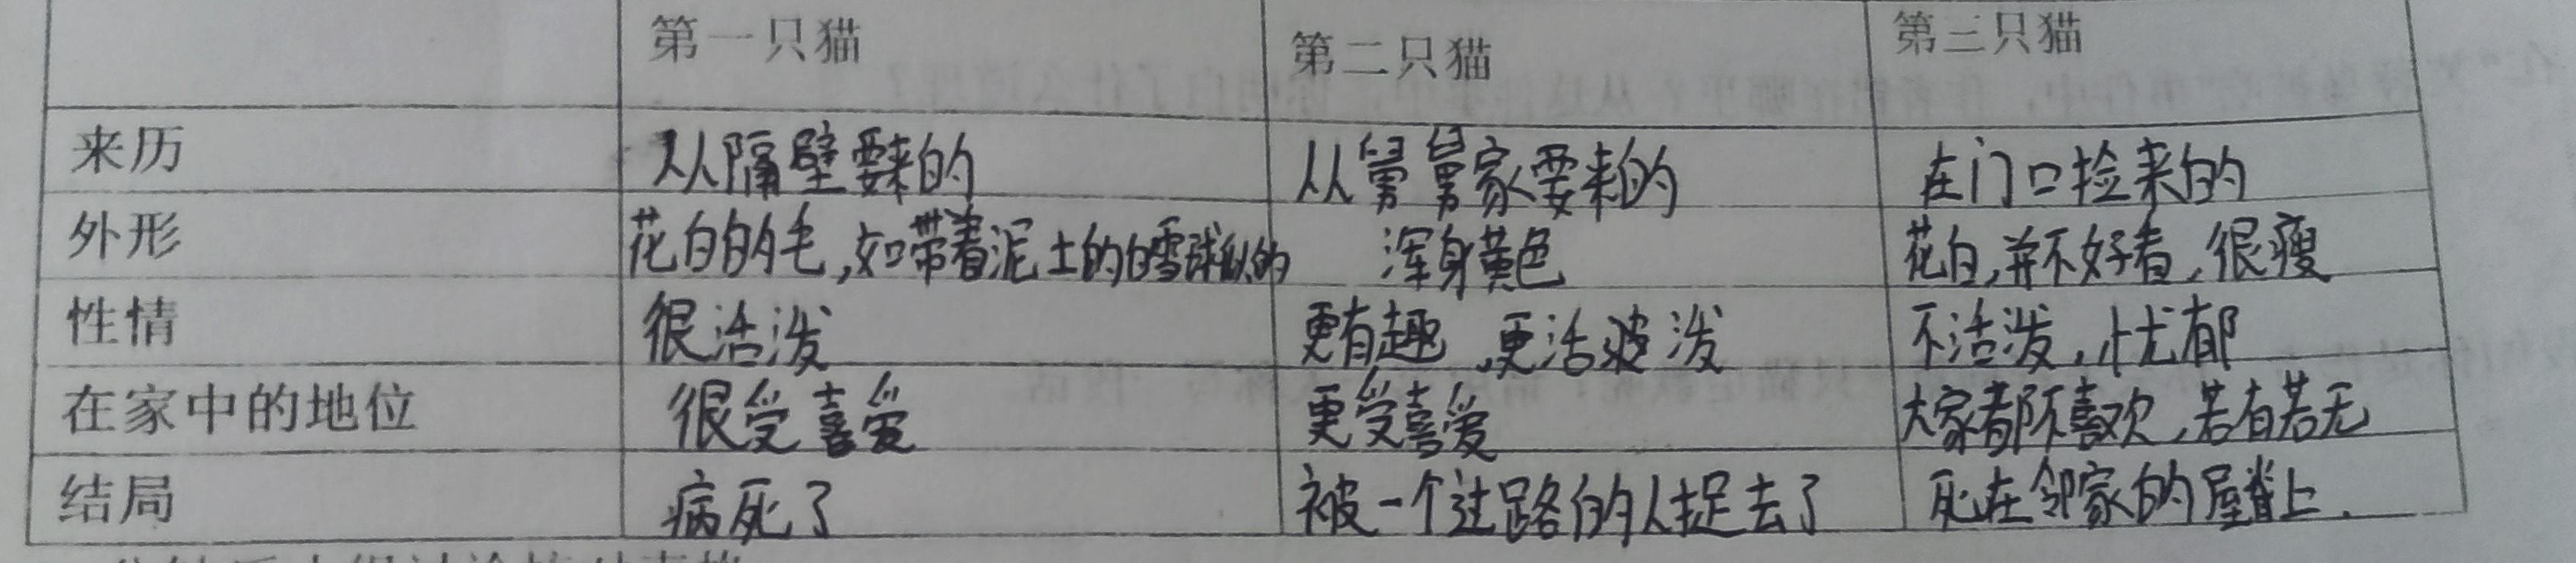 第一只猫 第二只猫 第三只猫
来历 从隔壁要来的 从舅舅家要来的 在门口捡来的
外形 花白的毛,如带着泥土的白雪球似的 浑身黄色 花白,并不好看,很瘦
性情 很活泼 更有趣,更活泼 不活泼,忧郁
在家中的地位 很受喜爱 更受喜爱 大家都不喜欢,若有若无
结局 病死了 被一个过路的人捉去了 死在邻家的屋脊上.